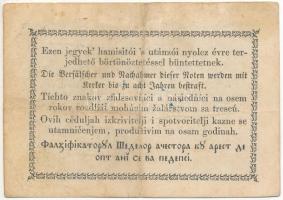 Ezen jegyek' hamisítói 's utánzói nyolcz évre ter-
jedhető börtönöztetéssel büntettetnek.
Die Verfälscher und Nachahmer dieser Noten werden mit
Kerker bis zu acht Jahren bestraft.
Tíchto znakov zfalšovníci a následníci na osem
rokov rozdlží mohúcim žalárstvom sa trescú.
Ovih céduljah izkrivitelji i spotvoritelji kazne se
utamničenjem, produživim na osam godinah.
Фалсіфікаторул Шеделор ачестора ку арест де
опт ані се ва педепсі.